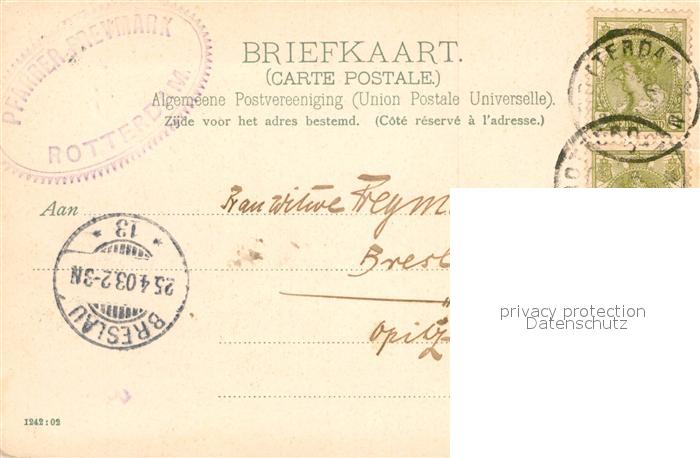 PFARRER FREYMARK
ROTTERDAM.
BRIEFKAART.
(CARTE POSTALE.)
Algemeene Postvereeniging (Union Postale Universelle).
Zijde voor het adres bestemd. (Côté réservé à l'adresse.)
ROTTERDAM
Aan Frau Witwe Freym
Bresl
Opitz
BRESLAU
25.4.03.2-3N
* 13 *
privacy protection
Datenschutz
1242:02